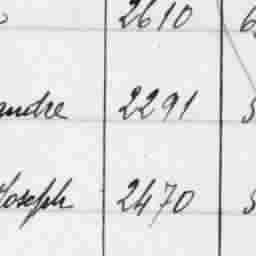 2610
andre 2291
Joseph 2470